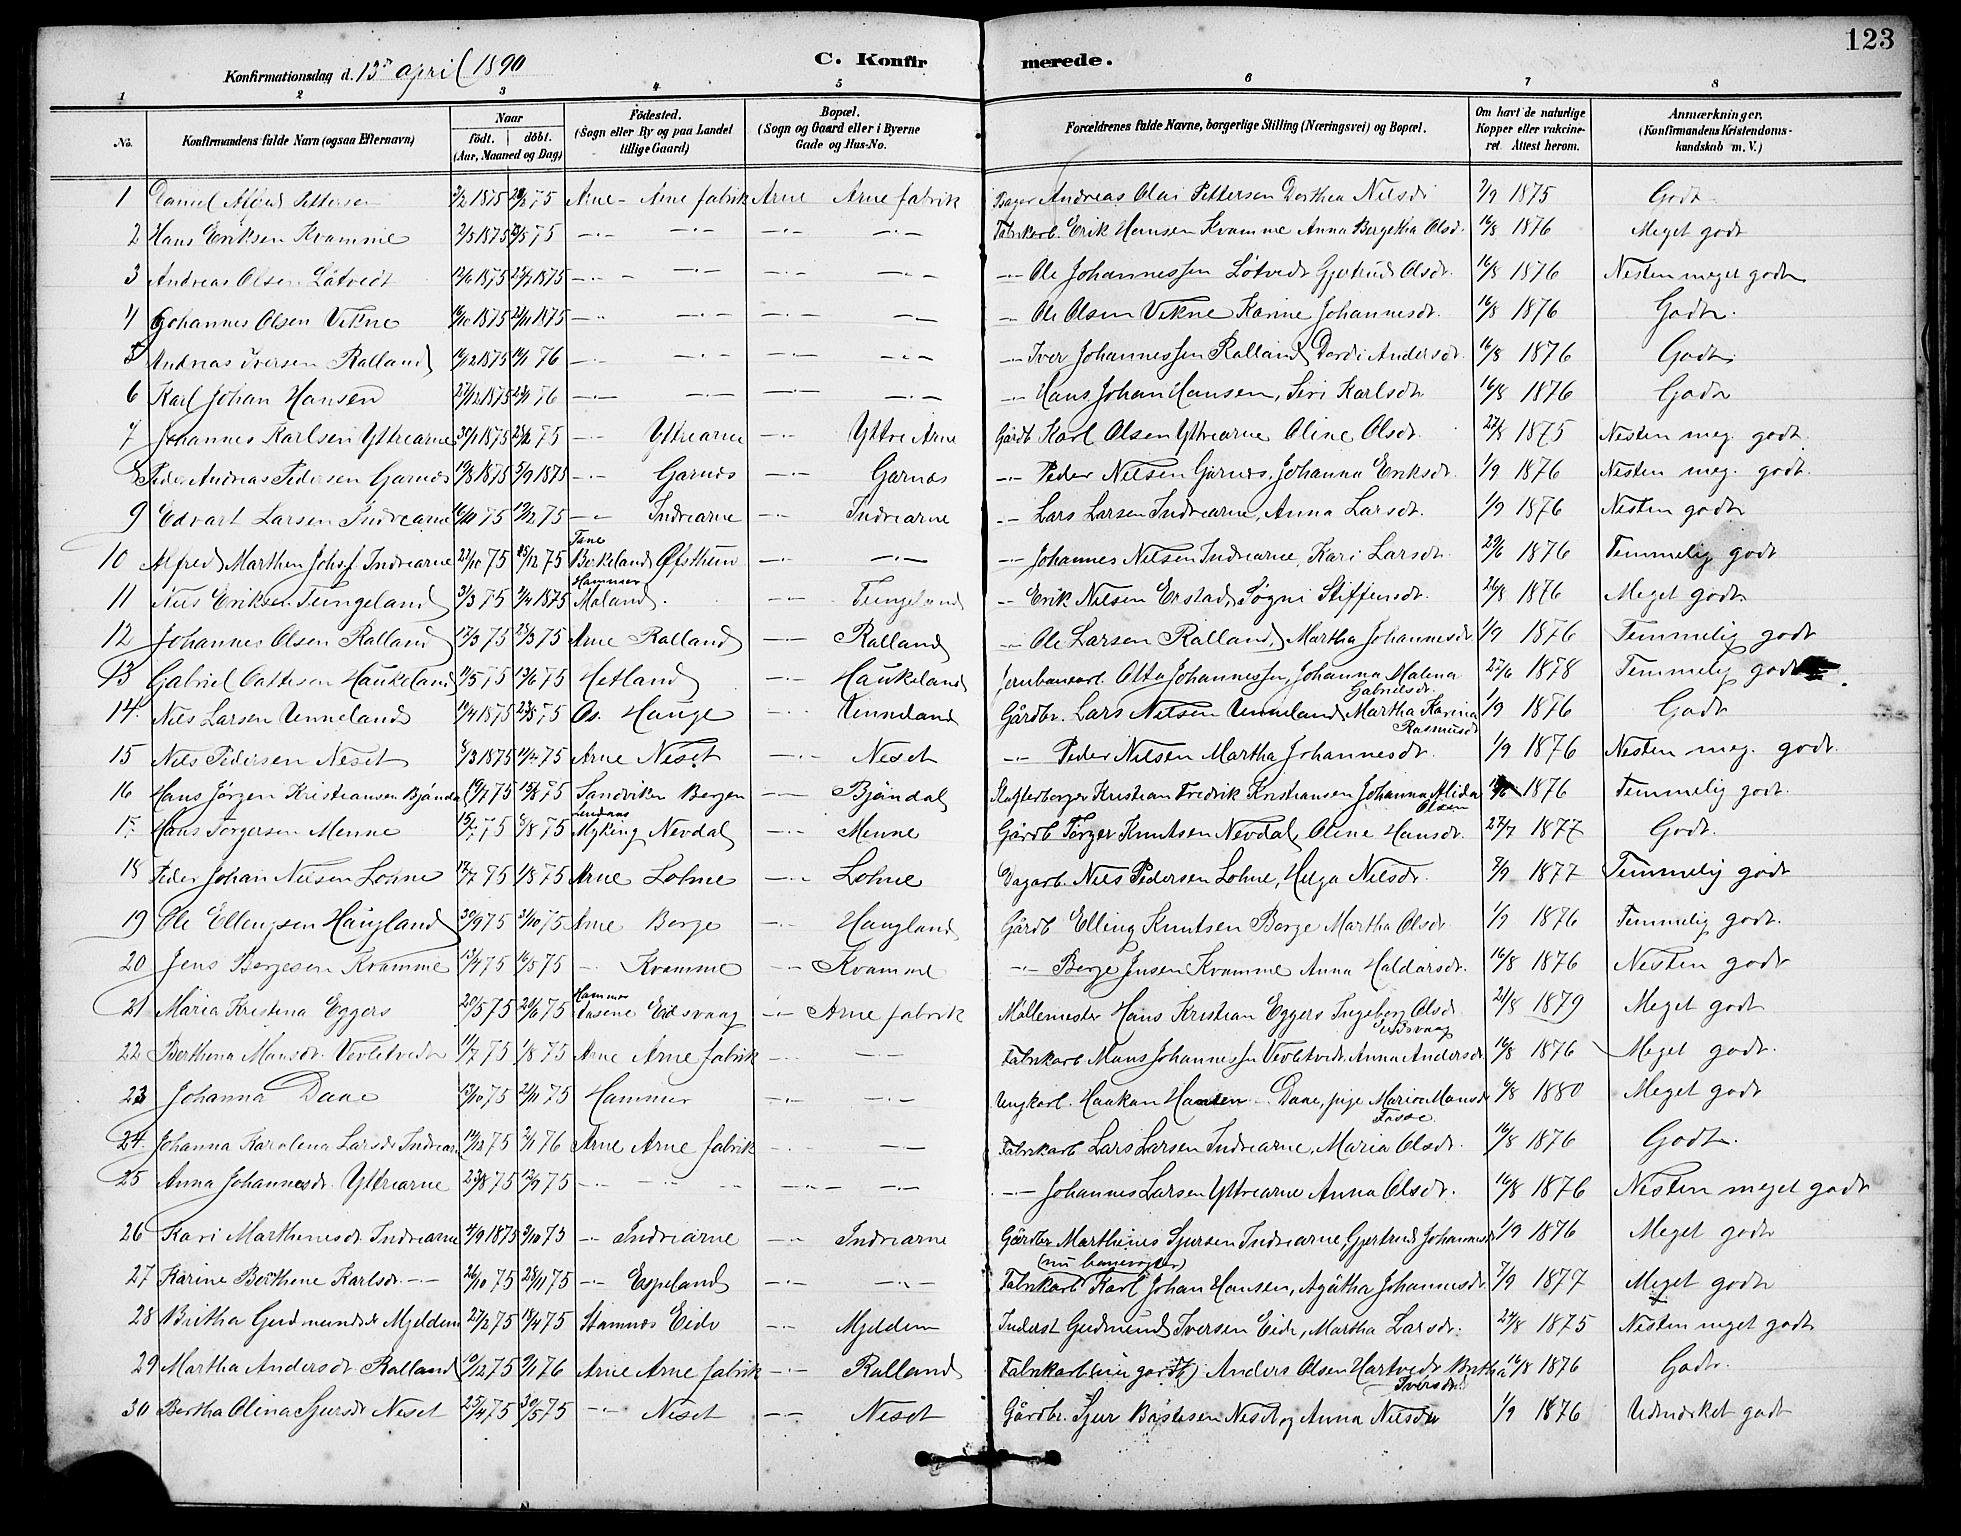 123
Konfirmationsdag d. 13de april 1890 C. Konfirmerede.
1 2 3 4 5 6 7 8
No. Konfirmandens fulde Navn (ogsaa Efternavn) Naar født. døbt. (Aar, Maaned og Dag) Fødested. (Sogn eller By og paa Landet tillige Gaard) Bopæl. (Sogn og Gaard eller i Byerne Gade og Hus-No. Forældrenes fulde Navne, borgerlige Stilling (Næringsvei) og Bopæl. Om havt de naturlige Kopper eller vakcineret. Attest herom. Anmærkninger. (Konfirmandens Kristendomskundskab m. V.)
1 Daniel Pettersen 2/2 1875 Arne - Arne fabrik Arne Arne fabrik Andreas Olai Pettersen Dorthea Nilsd. 2/9 1875 Godt
2 Hans Eriksen Kvamme 2/3 1875 —"— —"— —"— —"— Fabrikarb. Erik Hansen Kvamme Anna Bergetha Olsd. 16/8 1876 Meget godt
3 Andreas Olsen Løtvedt 1875 —"— —"— —"— —"— —"— Ole Johannessen Løtvedt Gjertrud Olsdt. 16/8 1876 Nesten meget godt
4 Johannes Olsen Vikne 1875 —"— —"— —"— —"— —"— Ole Olsen Vikne Karine Johannesdt. 16/8 1876 Godt.
5 Andreas Iversen Ralland 1875 76 —"— —"— —"— —"— —"— Iver Johannessen Ralland Dordi Andersdt. 16/8 1876 Godt.
6 Karl Johan Hansen 27/12 1875 76 —"— —"— —"— —"— —"— Hans Johan Hansen, Siri Karlsdt. 16/8 1876 Godt
7 Johannes Karlsen Yttrearne 1875 75 —"— Yttrearne —"— Yttre Arne Gårdb. Karl Olsen Yttrearne Oline Olsdt. 27/8 1875 Nesten meg. godt.
8 Peder Andreas Pedersen Garnes 19/8 1875 5/9 1875 —"— Garnæs —"— Garnæs —"— Peder Nilsen Garnæs, Johanna Eriksdt. 1/9 1876 Nesten meg. godt.
9 Edvart Larsen Indrearne 75 75 —"— Indrearne —"— Indrearne —"— Lars Larsen Indrearne, Anna Larsdt. 1/9 1876 Nesten godt
10 Alfred Marthin Johsf. Indrearne 22/10 75 /12 75 Fane Birkeland Øfsthun —"— —"— —"— Johannes Nilsen Indrearne, Kari Larsdt. 1876 Temmelig godt
11 Nils Eriksen Tungeland 3/3 75 1875 Hammer Moland. —"— Tungeland —"— Erik Nilsen Erstad, Søgni Stiffensdt. 26/8 1876 Meget godt
12 Johannes Olsen Ralland 17/3 75 /3 75 Arne Ralland —"— Ralland —"— Ole Larsen Ralland, Martha Johannesdt 1/9 1876 Temmelig godt
13 Gabriel Ottesen Haukeland /5 75 13/6 75 Hetland —"— Haukeland Jernbanearb. Otto Johannessen, Johanna Malena Gabrielsdt. 27/6 1878 Temmelig godt
14. Nils Larsen Unneland 1875 75 Os. Hauge —"— Unneland Gårdbr. Lars Nilsen Unneland, Martha Karina Rasmusdt 1/9 1876 Godt
15 Nils Pedersen Neset 8/3 1875 11/4 75 Arne Neset —"— Neset —"— Peder Nilsen Martha Johannesdt. 1/9 1876 Nesten meg. godt.
16 Hans Jörgen Kristiansen Bjöndal 19/7 75 75 Sandviken Bergen —"— Bjöndal Kristian Fredrik Kristiansen Johanna Alida Olsen 1876 Temmelig godt.
17 Hans Torgersen Menne 15/7 75 8/8 75 Lindaas Myking Nevdal —"— Menne Gårdb. Torger Knutsen Nevdal, Oline Hansdt. 27/7 1877 Godt.
18 Peder Johan Nilsen Lohne 75 1/8 75 Arne Lohne —"— Lohne Dagarb. Nils Pedersen Lohne, Helga Nilsdt. 7/9 1877 Temmelig godt
19 Ole Ellingsen Haugland 30/9 75 /10 75 Arne Borge —"— Haugland Gårdb. Elling Knutsen Borge Martha Olsdt. 1/9 1876 Temmelig godt.
20 Jens Børgesen Kvamme 13/4 75 16/5 75 —"— Kvamme —"— Kvamme —"— Børge Jensen Kvamme Anna Haldorsdt. 16/8 1876 Nesten godt
21 Maria Kristina Eggers 20/5 75 20/6 75 Hammer Aasene Eidsvaag —"— Arne fabrik Møllemester Hans Kristian Eggers Ingeborg Olsd. Eidsvaag 21/8 1879 Meget godt
22 Berthina Monsdt. 11/7 75 1/8 75 Arne Arne fabrik —"— —"— Fabrikarb. Mons Johannessen Anna Andersdt 16/8 1876 Meget godt.
23 Johanna Daae 13/10 75 21/11 75 Hammer —"— —"— Ungkarl. Haakon Hansen Daae, pige Marion Monsdt Fosse. 6/8 1880 Meget godt
24. Johanna Karolena Larsdt Indrearn 75 76 Arne Arne fabrik —"— —"— Fabrikarb Lars Larsen Indrearne, Maria Olsdt. 16/8 1876 Godt.
25 Anna Johannesdt. Yttrearne 23/8 75 12/9 75 —"— —"— —"— —"— —"— Johannes Larsen Yttrearne Anna Olsdt. 16/8 1876 Nesten meget godt
26 Kari Marthinesdt Indrearne 4/9 1875 3/10 75 —"— Indrearne —"— Indrearne Gårdbr Marthines Sjursen Indrearne, Gjertrud Johannesdt 1/9 1876 Meget godt
27 Karine Berthine Karlsdt. —"— 26/10 75 28/11 75 —"— Espeland —"— —"— Fabrikarb (nu banevogter) Karl Johan Hansen, Agätha Johannesdt 7/9 1877 Meget godt
28 Britha Gudmundsdt Mjeldem 27/2 75 18/4 75 Stamnes Eide —"— Mjeldem Inderst Gudmund Iversen Eide, Martha Larsdt. 24/8 1875 Nesten meget godt
29 Martha Andersdt Ralland /12 75 76 Arne Arne fabrik —"— Ralland Fabrikarb (nu gardb) Anders Olsen Hartvedt Britha Iversdt 16/8 1876 Godt.
30 Bertha Olina Sjursdt Neset 25/4 75 30/5 75 —"— Neset —"— Neset Gårdbr. Sjur Neset og Anna Nilsdt 1/9 1876 Udmærket godt